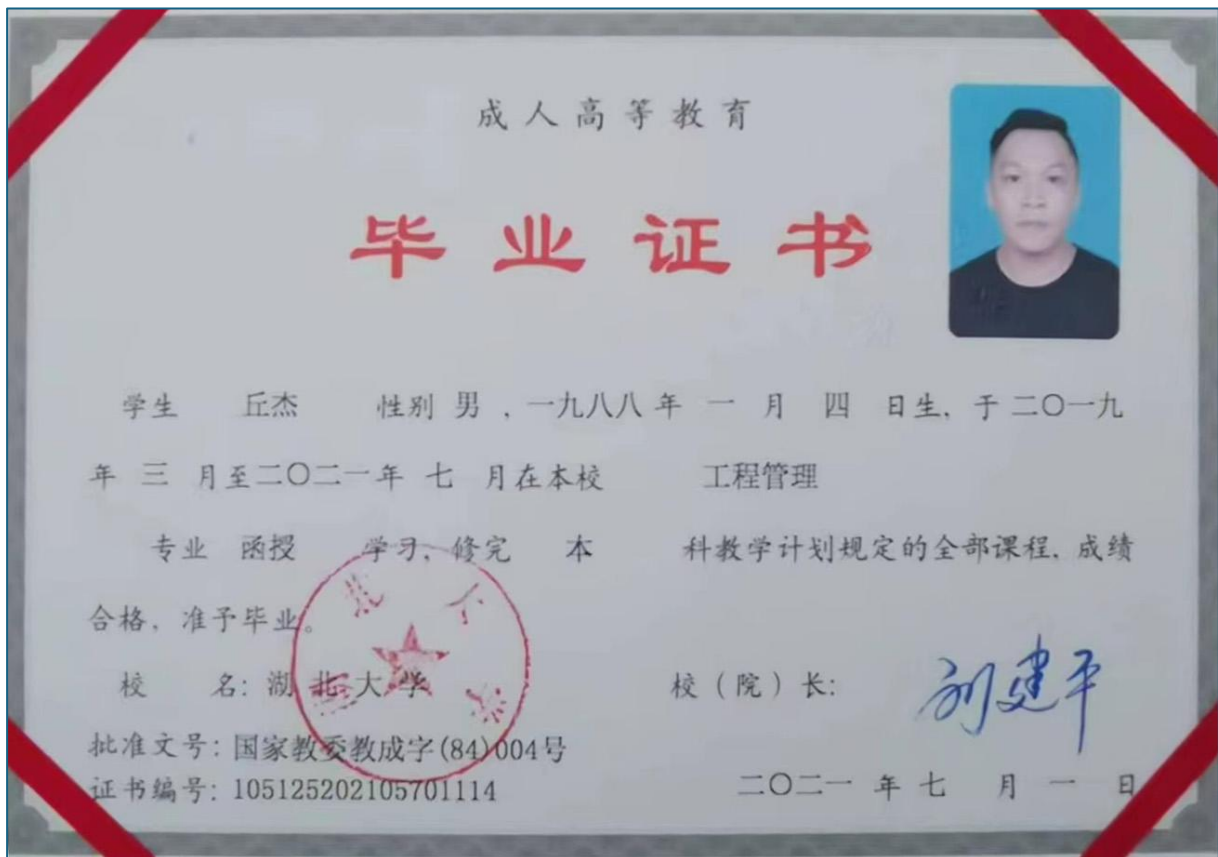 成人高等教育
毕业证书
学生 丘杰 性别 男 , 一九八八 年 一 月 四 日生, 于 二〇一九
年 三 月至二〇二一年 七 月在本校 工程管理
专业 函授 学习, 修完 本 科教学计划规定的全部课程, 成绩
合格, 准予毕业。
校 名: 湖北大学 校(院)长: 刘建平
批准文号: 国家教委教成字(84)004号
证书编号: 105125202105701114 二〇二一 年 七 月 一 日
湖北大学